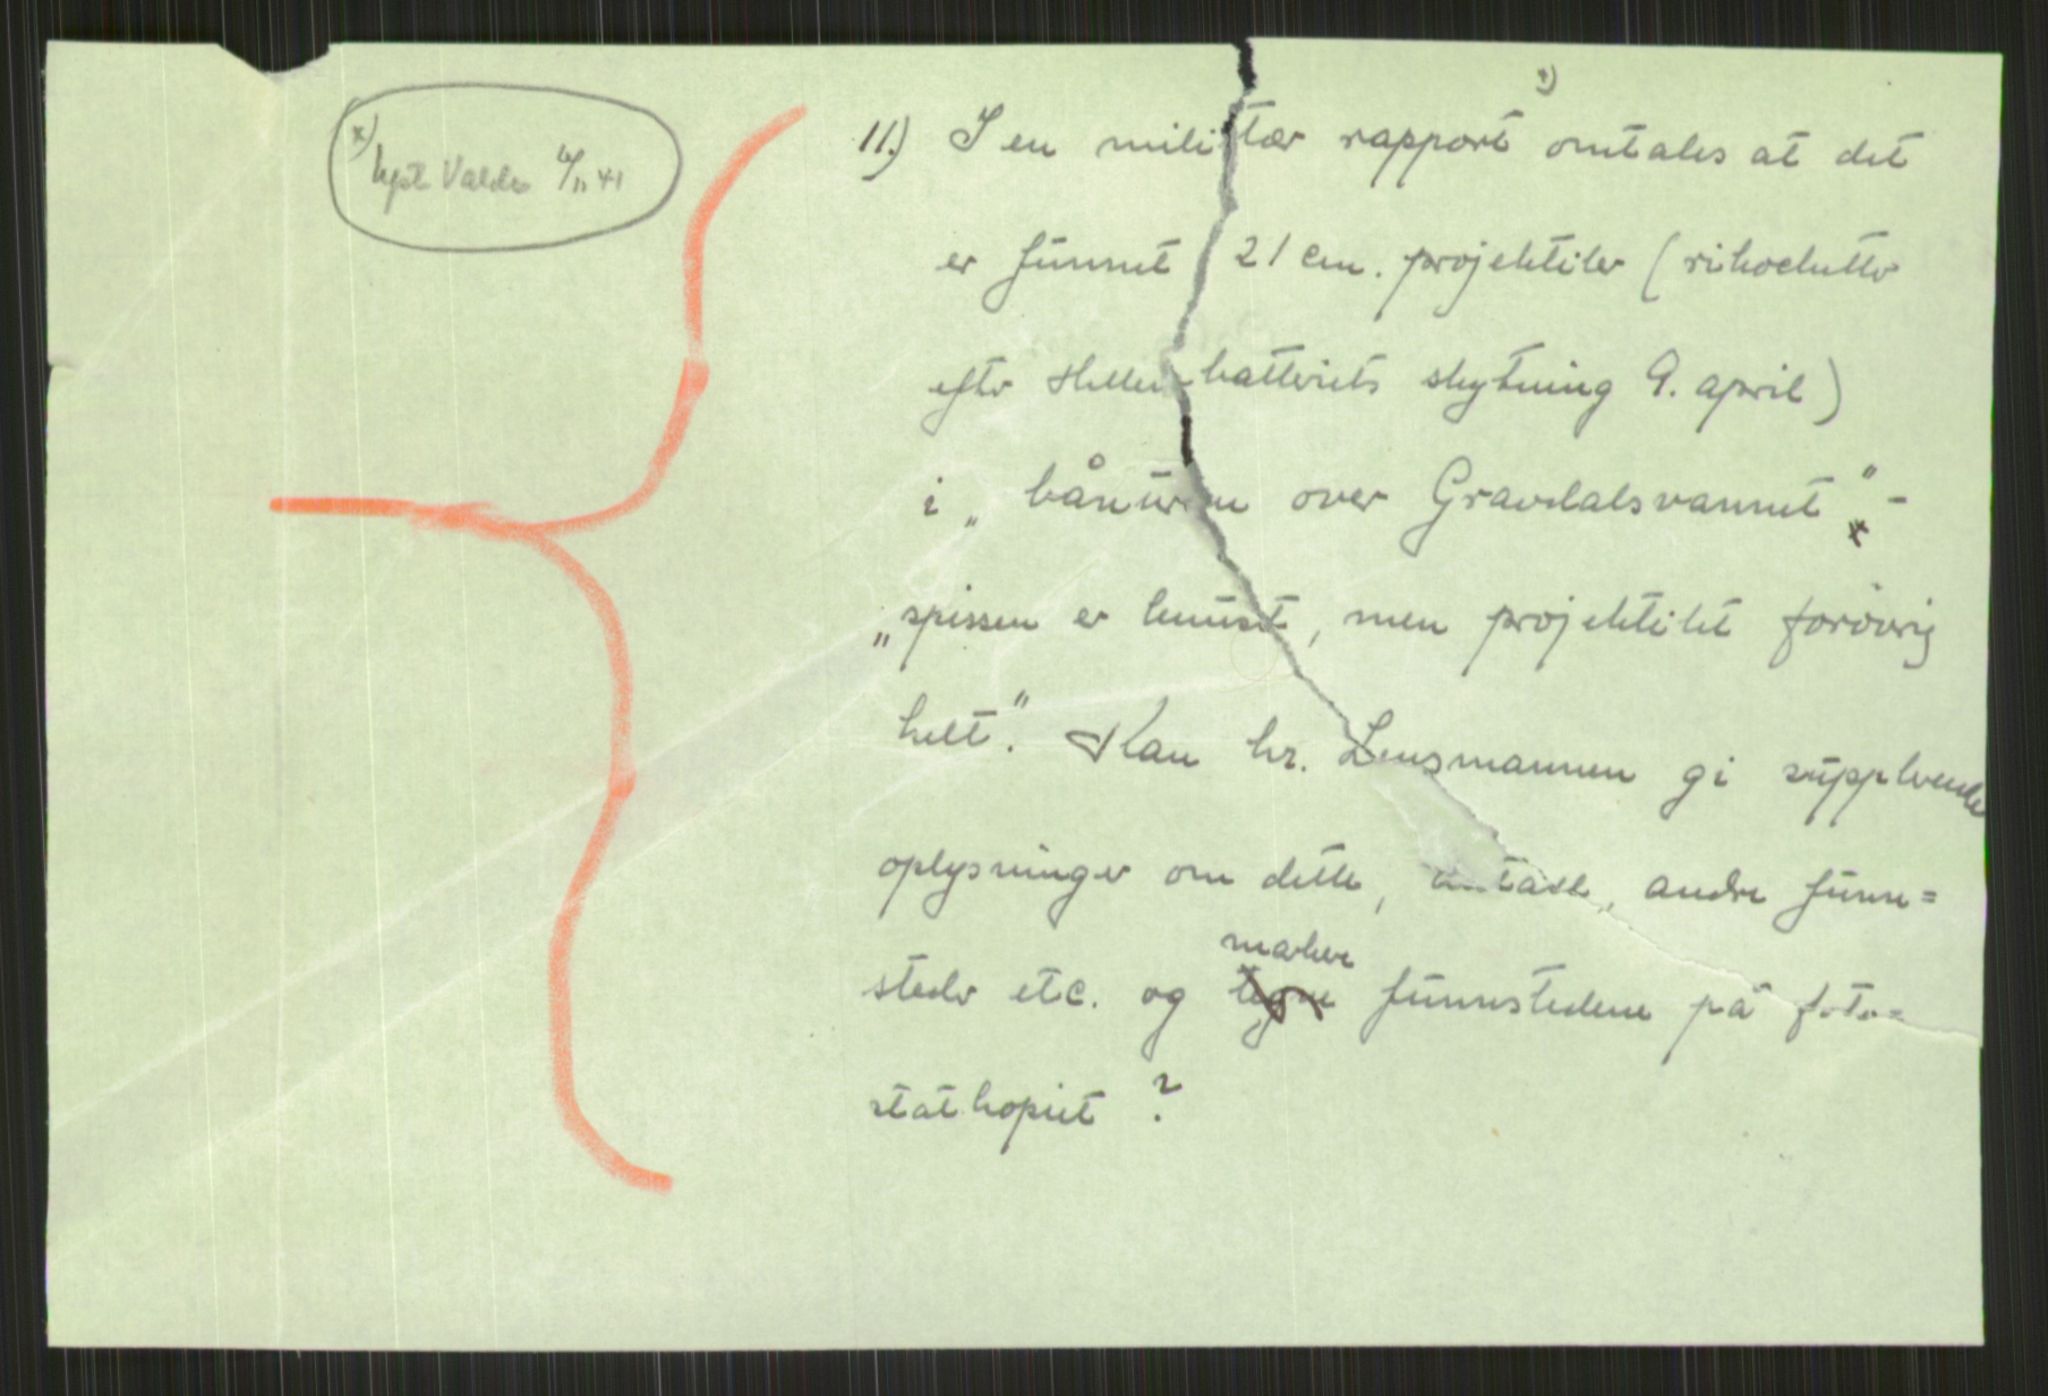 x)
Kapt. Valde 6/11 41
x)
11.) I en militær rapport omtales at det
er funnet 21 cm. projektiler (rikochetter
efter Hellenbatteriets skytning 9. april)
i „ over Gravdalsvannet" -
„spissen er knust, men projektilet forøvrig
helt". Kan hr. Lensmannen gi supplerende
oplysninger om dette, antall, andre funn=
steder etc. og tegne funnstedene på foto=
merke
statkopiet ?